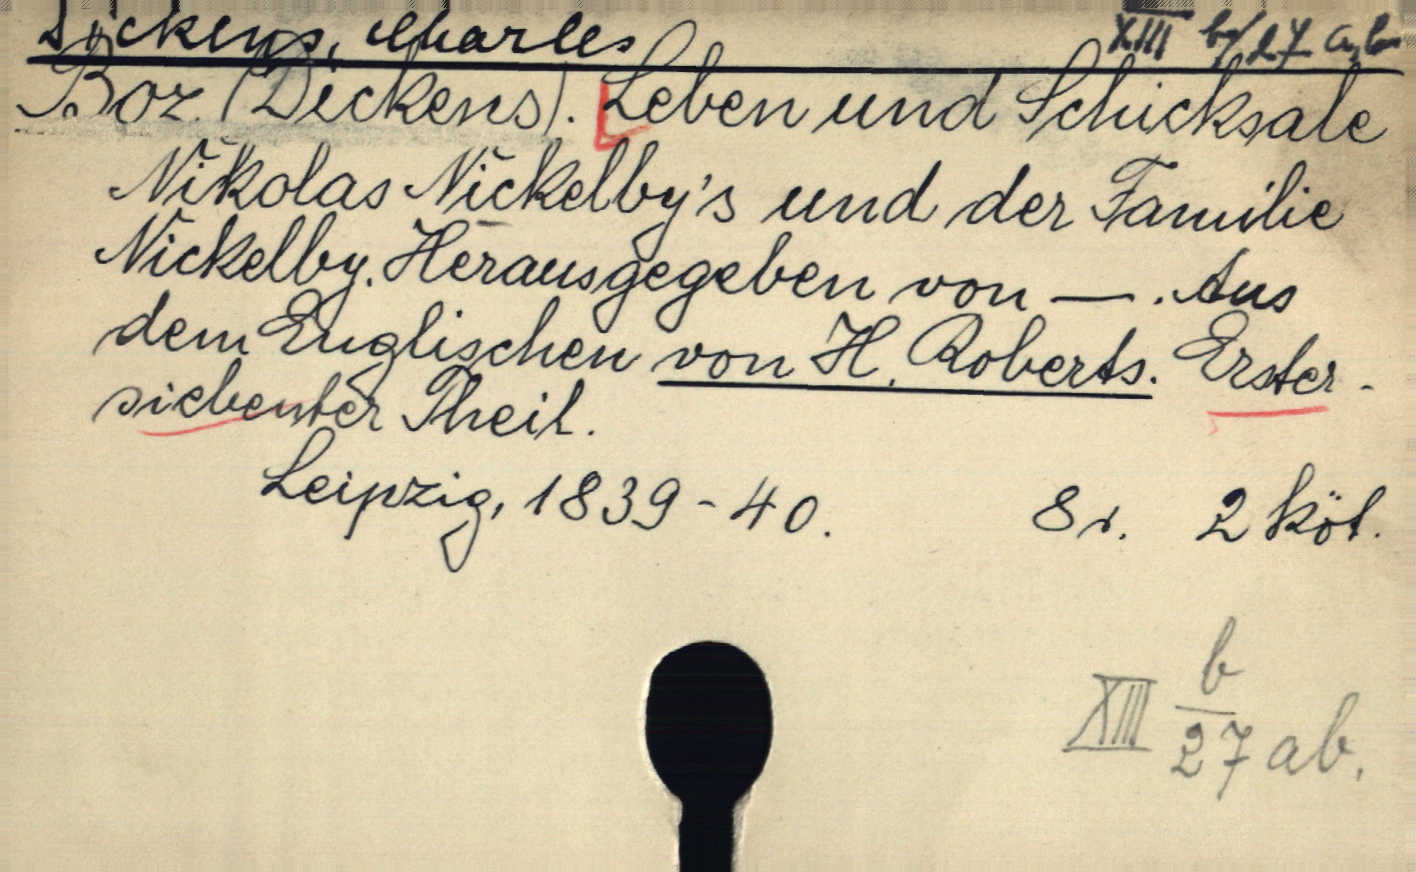 Dickens, Charles XIII b/27 a,b
Boz. (Dickens). Leben und Schicksale
Nikolas Nickelby's und der Familie
Nickelby. Herausgegeben von —. Aus
dem Englischen von H. Roberts. Erster-
siebenter Theil.
Leipzig, 1839-40. 8r. 2 köt.
XIII b
27 ab.